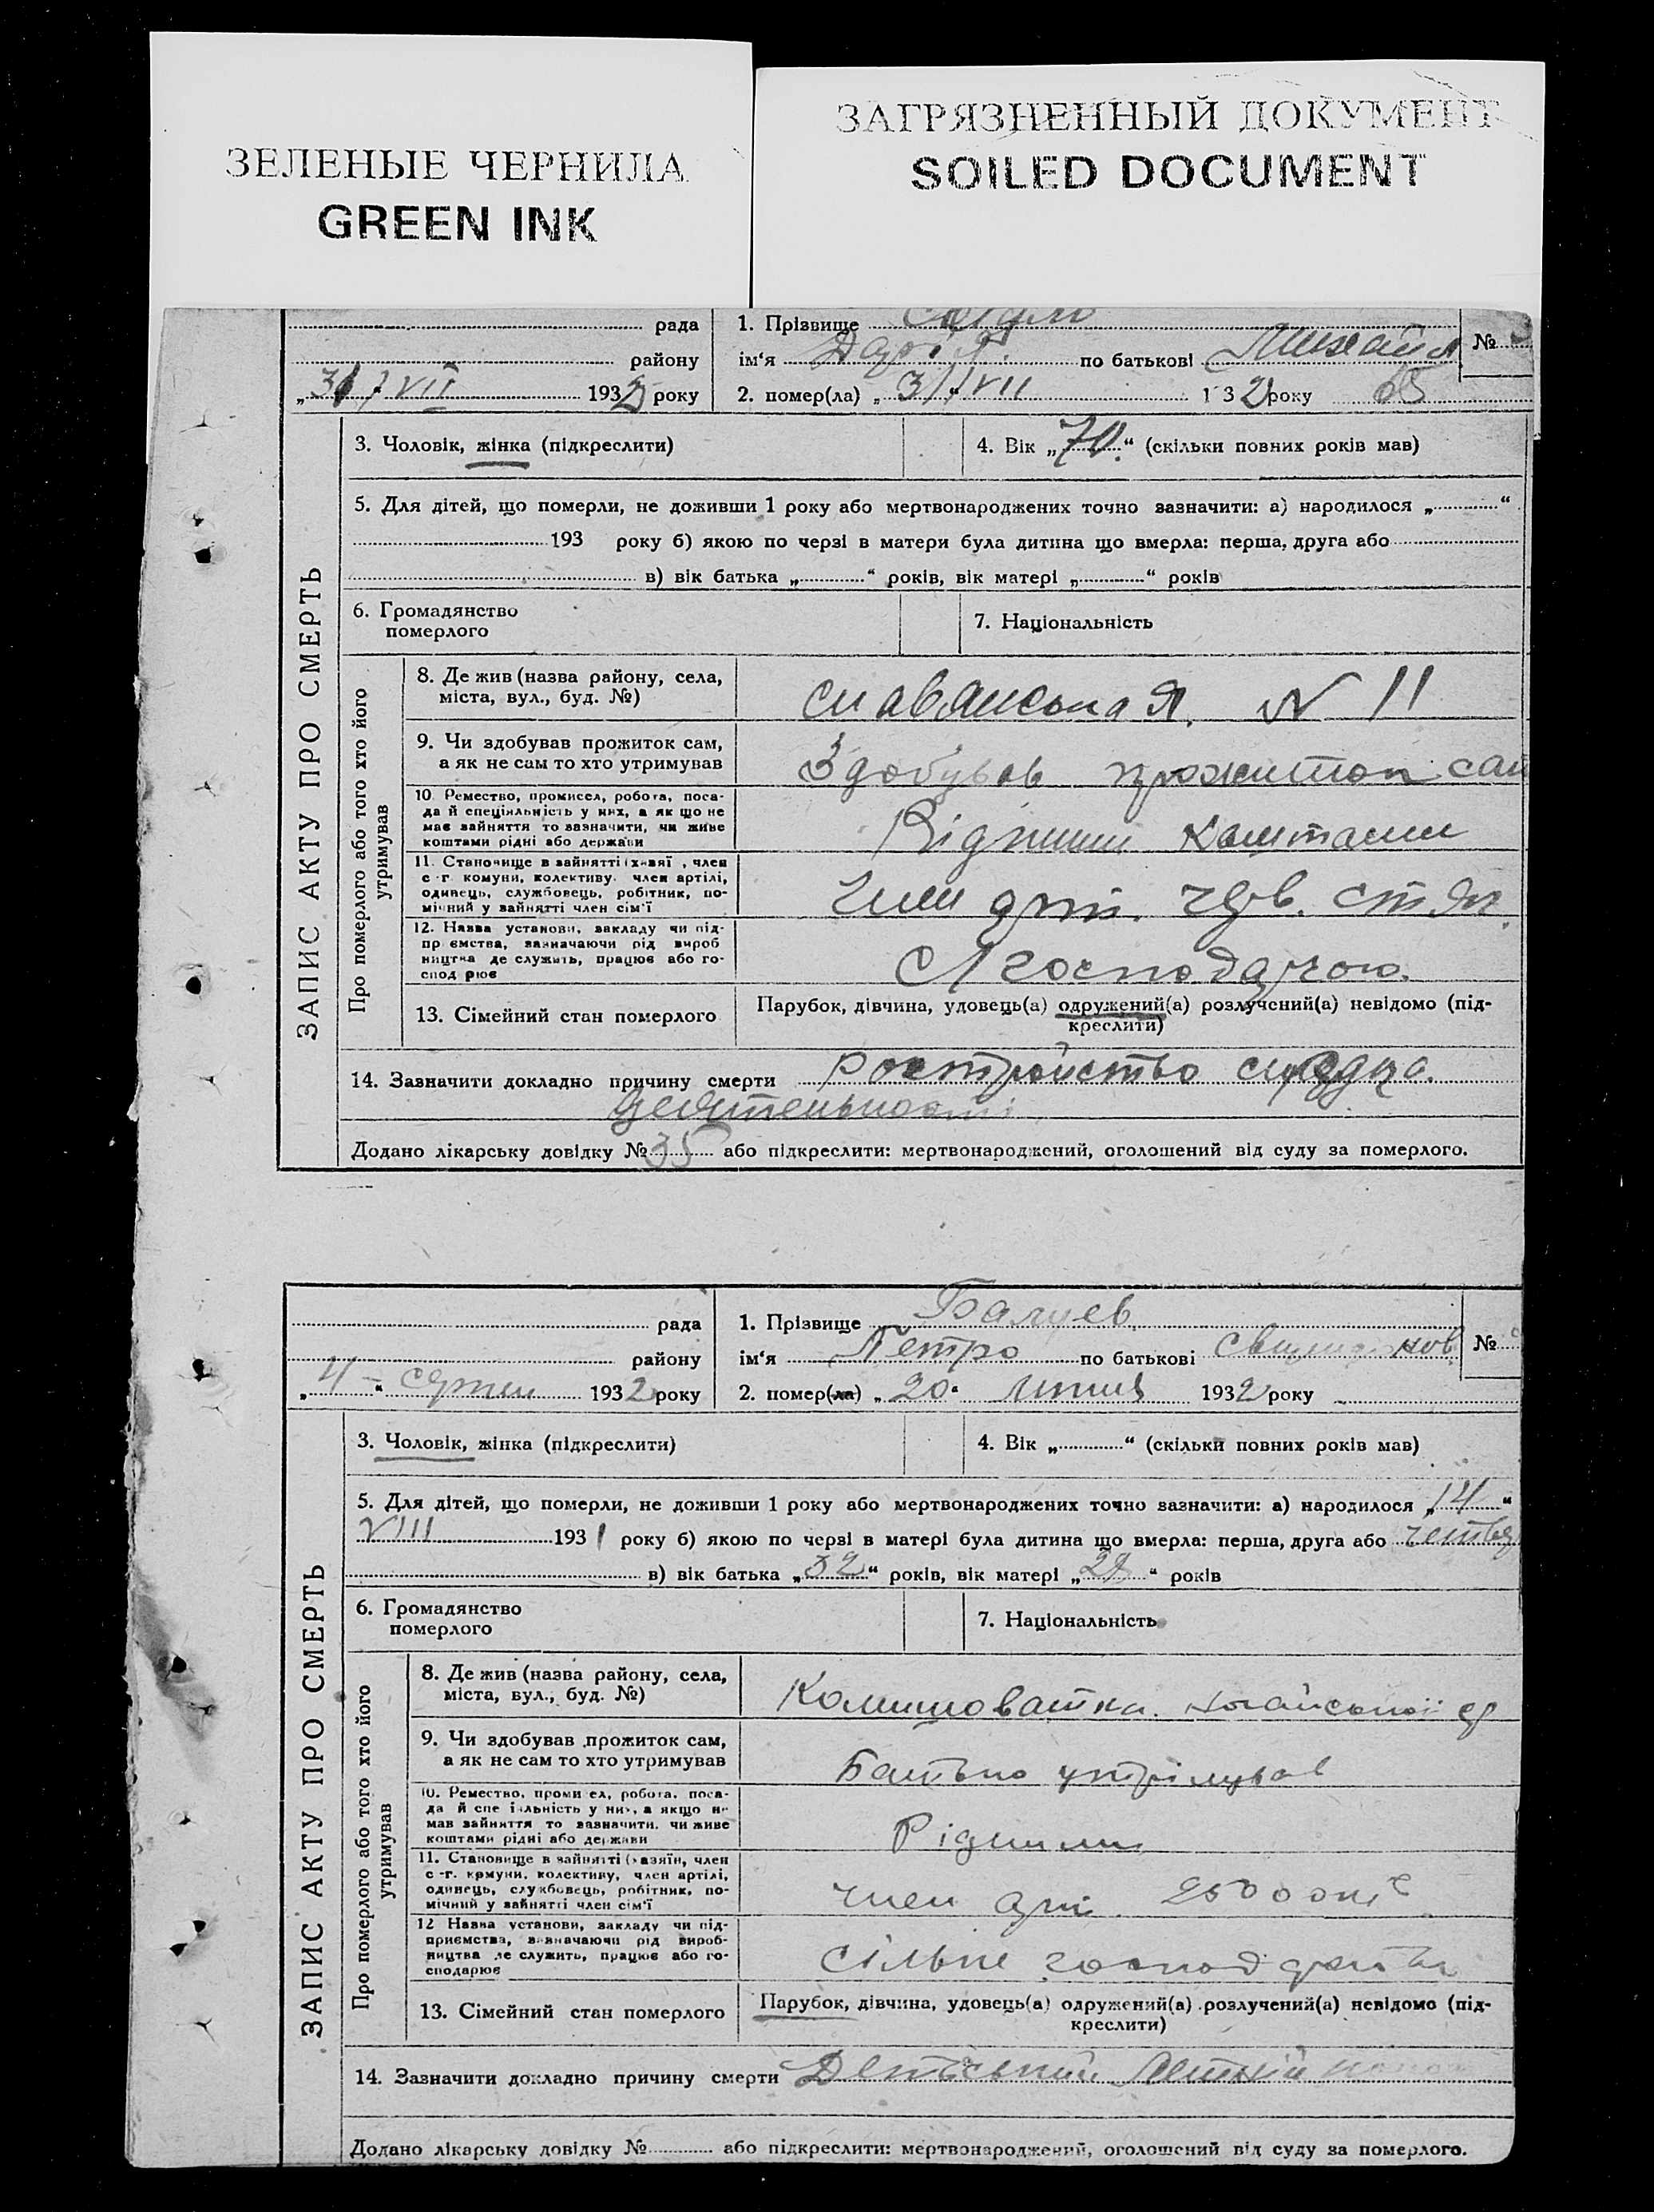 ЗЕЛЕНЫЕ ЧЕРНИЛА
GREEN INK
ЗАГРЯЗНЕННЫЙ ДОКУМЕНТ
SOILED DOCUMENT
рада
району
193 року
1. Прізвище
ім'я Дарія по батькові Михайл №
2. помер(ла) „31" VII 1 32 року 65
ЗАПИС АКТУ ПРО СМЕРТЬ
3. Чоловік, жінка (підкреслити)
4. Вік „70." (скільки повних років мав)
5. Для дітей, що померли, не доживши 1 року або мертвонароджених точно зазначити: а) народилося „ "
193 року б) якою по черзі в матери була дитина що вмерла: перша, друга або
в) вік батька „ " років, вік матері „ " років
6. Громадянство
померлого
7. Національність
Про померлого або того хто його
утримував
8. Де жив (назва району, села,
міста, вул., буд. №)
славянская. N 11
9. Чи здобував прожиток сам,
а як не сам то хто утримував
Здобував прожиток сам
10. Ремество, промисел, робота, поса-
да й спеціяльність у них, а як що не
має зайняття то зазначити, чи живе
коштами рідні або держави
Рідними коштами
11. Становище в зайнятті (х зяї , член
с -г. комуни, колективу член артілі,
одинець, службовець, робітник, по-
мічний у зайнятті член сім'ї
член арт. черв. степ.
12. Назва установи, закладу чи під-
пр ємства, зазначаючи рід вироб
ництва де служить, працює або го-
спод рює
13. Сімейний стан померлого
Парубок, дівчина, удовець(а) одружений(а) розлучений(а) невідомо (під-
креслити)
14. Зазначити докладно причину смерти ростройство сердца.
деятельности
Додано лікарську довідку № 35 або підкреслити: мертвонароджений, оголошений від суду за померлого.
рада
району
„4" серпня 1932 року
1. Прізвище Балуев
ім'я Петро по батькові №
2. помер(ла) „20" липня 1932 року
ЗАПИС АКТУ ПРО СМЕРТЬ
3. Чоловік, жінка (підкреслити)
4. Вік „ " (скільки повних років мав)
5. Для дітей, що померли, не доживши 1 року або мертвонароджених точно зазначити: а) народилося „14"
VIII 1931 року б) якою по черзі в матері була дитина що вмерла: перша, друга або
в) вік батька „32" років, вік матері „28" років
6. Громадянство
померлого
7. Національність
Про померлого або того хто його
утримував
8. Де жив (назва району, села,
міста, вул., буд. №)
Комишоватка. ногайської
9. Чи здобував прожиток сам,
а як не сам то хто утримував
Батько утрімував
10. Ремество, проми ел, робота, поса-
да й спе іяльність у них, а якщо не
мав зайняття то зазначити, чи живе
коштами рідні або держави
Рідними
11. Становище в зайнятті (хазяїн, член
с -г. комуни, колективу, член артілі,
одинець, службовець, робітник, по-
мічний у зайнятті член сім'ї
член арт. 25000
12 Назва установи, закладу чи під-
приємства, зазначаючи рід вироб-
ництва де служить, працює або го-
сподарює
сільне
13. Сімейний стан померлого
Парубок, дівчина, удовець(а) одружений(а) розлучений(а) невідомо (під-
креслити)
14. Зазначити докладно причину смерти Детський летній
Додано лікарську довідку № або підкреслити: мертвонароджений, оголошений від суду за померлого.